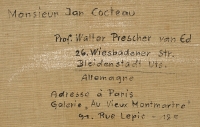 Monsieur Jan Cocteau
Prof. Walter Prescher van Ed
26. Wiesbadener Str.
Bleidenstadt Uts.
Allemagne
Adresse à Paris.
Galerie „Au Vieux Montmartre"
Rue Lepic -